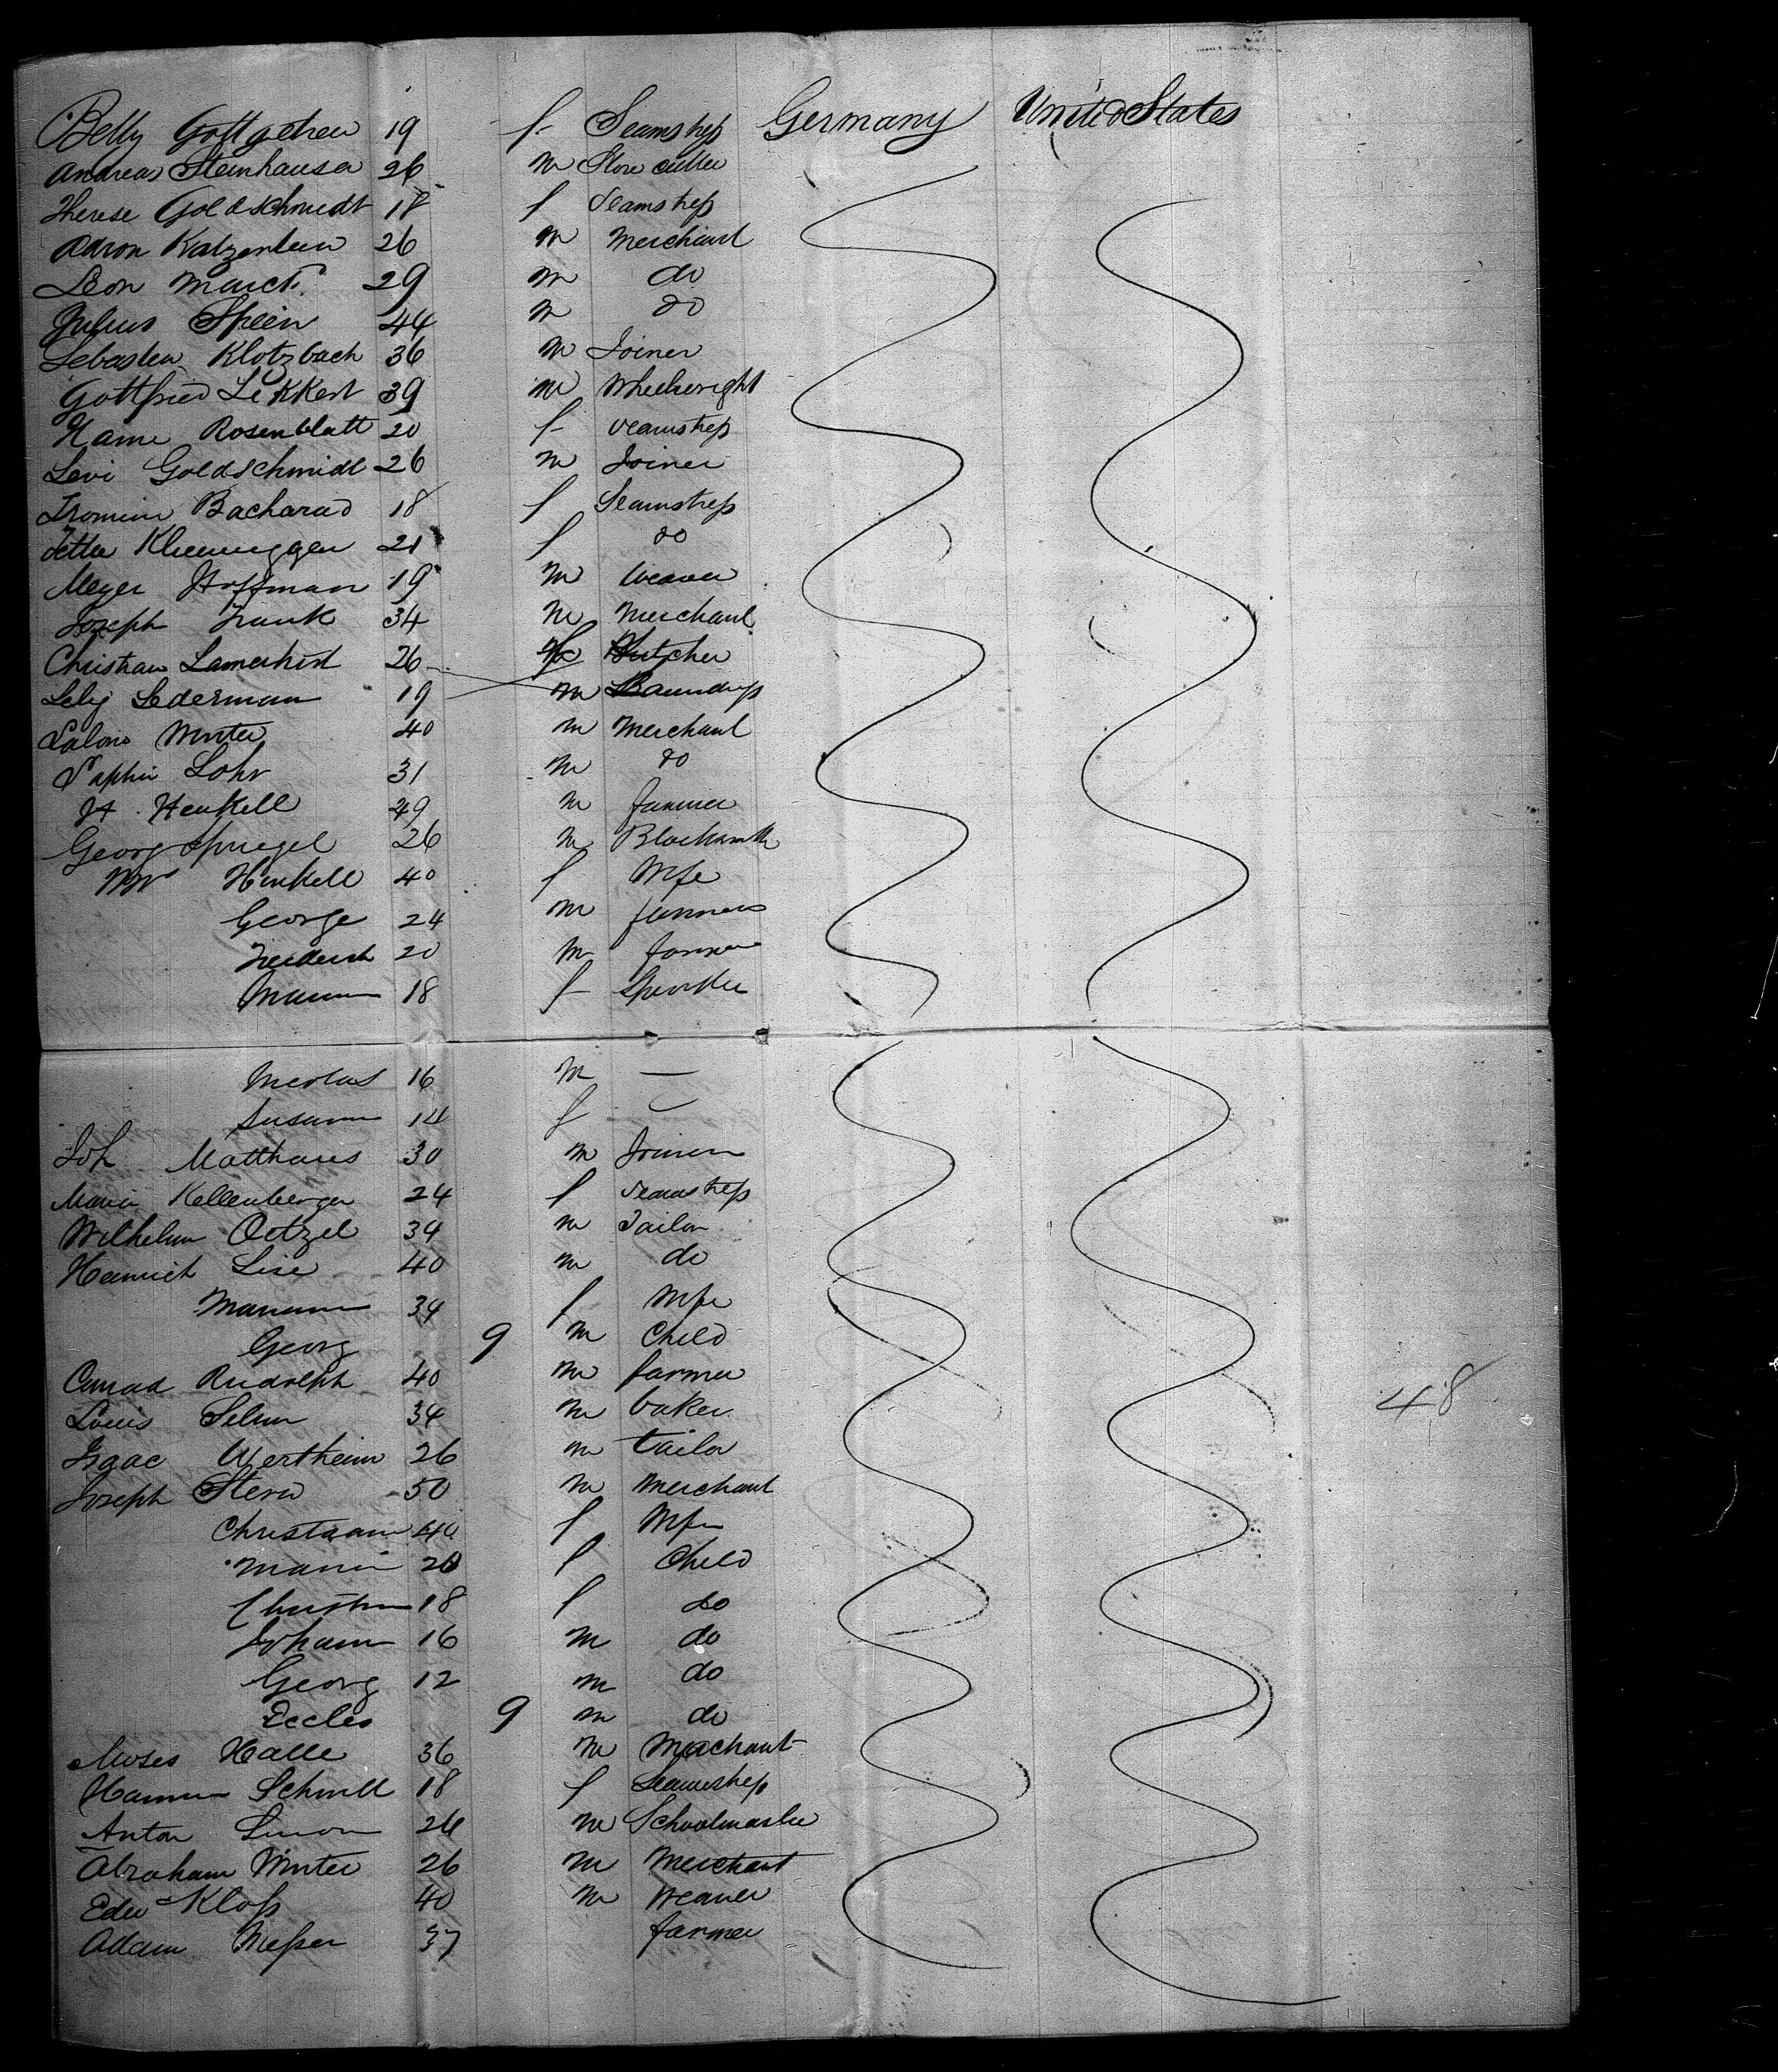 Betty Gottgetreu 19 f Seamstress Germany United States
Andreas Steinhauser 26 m Stone cutter
Therese Goldschmidt 18 f Seamstress
Aaron Katzenstein 26 m Merchant
Leon 29 m do
Julius Stein 44 m do
Sebastien Klotzbach 36 m Joiner
Gottfried Lekkert 39 m Wheelwright
Rosenblatt 20 f Seamstress
Levi Goldschmidt 26 m Joiner
Bacharad 18 f Seamstress
21 f do
Meyer Hoffman 19 m Weaver
Joseph Frank 34 m Merchant
Christian 26 Butcher
Lederman 19 m Laundress
40 m Merchant
Lohr 31 m do
H. Henkell 49 m farmer
Georg Spiegel 26 m Blacksmith
Mrs Henkell 40 f Wife
George 24 m farmer
Frederick 20 m farmer
18 f Spinster
Nicolas 16 m —
Susanna 14 f —
Joh Matthaues 30 m Joiner
Maria Kellenberger 24 f Seamstress
Wilhelm Oetzel 34 m Tailor
Heinrich Lise 40 m do
34 f Wife
Georg 9 m Child
Conrad Rudolph 40 m farmer
Louis 34 m baker
Isaac Wertheim 26 m tailor
Joseph Stern 50 m Merchant
40 f Wife
Maria 20 f Child
18 f do
Johann 16 m do
Georg 12 m do
Eccles 9 m do
Moses Halle 36 m Merchant
18 f Seamstress
Anton Simon m Schoolmaster
Abraham Winter 26 m Merchant
Kloss 40 m Weaver
Adam Messer 37 farmer
48